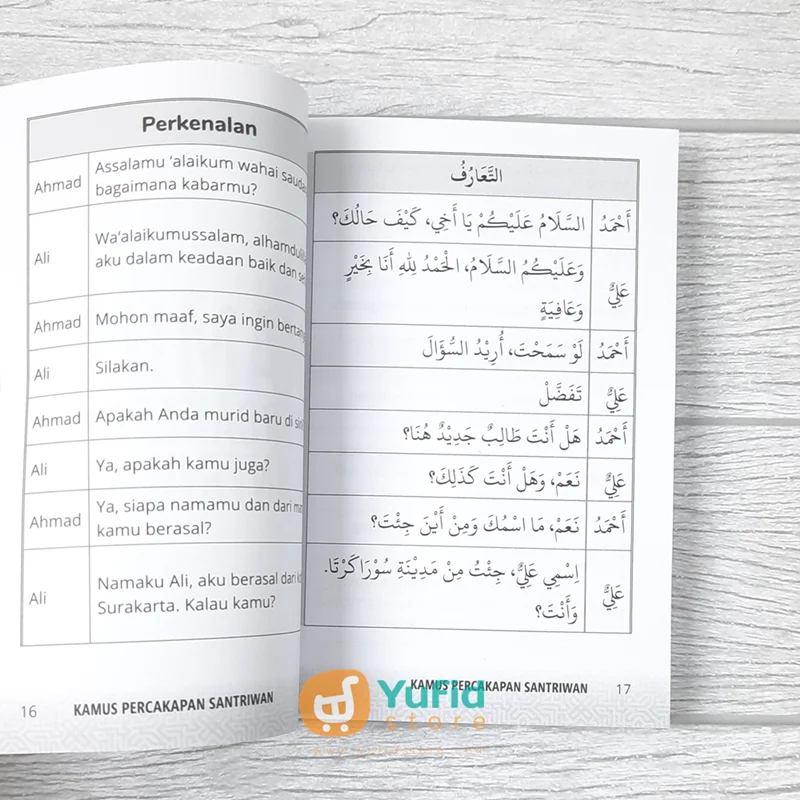 Perkenalan
Ahmad
Assalamu 'alaikum wahai
bagaimana kabarmu?
Ali
Wa'alaikumussalam,
aku dalam keadaan baik dan
Ahmad
Mohon maaf, saya ingin
Ali
Silakan.
Ahmad
Apakah Anda murid baru di
Ali
Ya, apakah kamu juga?
Ahmad
Ya, siapa namamu dan dari
kamu berasal?
Ali
Namaku Ali, aku berasal dari
Surakarta. Kalau kamu?
16 KAMUS PERCAKAPAN SANTRIWAN
التَّعَارُفُ
أَحْمَدُ
السَّلَامُ عَلَيْكُمْ يَا أَخِي، كَيْفَ حَالُكَ؟
عَلِيٌّ
وَعَلَيْكُمُ السَّلَامُ، الْحَمْدُ لِلهِ أَنَا بِخَيْرٍ
وَعَافِيَةٍ
أَحْمَدُ
لَوْ سَمَحْتَ، أُرِيْدُ السُّؤَالَ
عَلِيٌّ
تَفَضَّلْ
أَحْمَدُ
هَلْ أَنْتَ طَالِبٌ جَدِيْدٌ هُنَا؟
عَلِيٌّ
نَعَمْ، وَهَلْ أَنْتَ كَذَلِكَ؟
أَحْمَدُ
نَعَمْ، مَا اسْمُكَ وَمِنْ أَيْنَ جِئْتَ؟
عَلِيٌّ
اِسْمِي عَلِيٌّ، جِئْتُ مِنْ مَدِيْنَةِ سُوْرَاكَرْتَا.
وَأَنْتَ؟
KAMUS PERCAKAPAN SANTRIWAN 17
Yufid
store